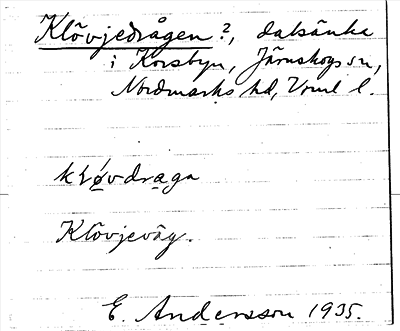 Klövjedrågen?, dalsänka
i Korsbyn, Järnskogs sn,
Nordmarks hd, Vrml l.
klǿ̱vdra̱ga
Klövjeväg.
E. Andersson 1935.